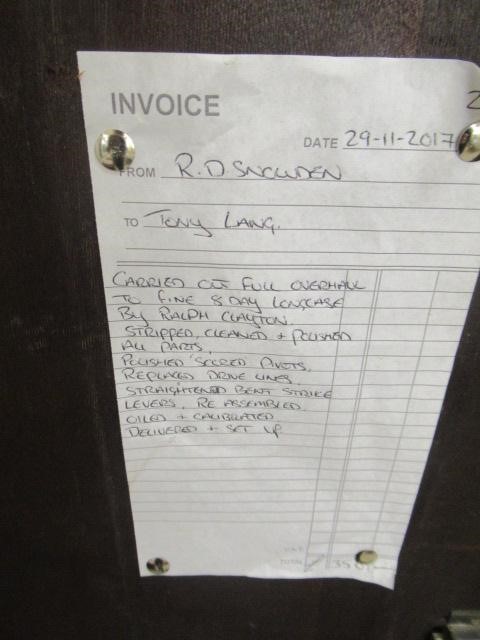 INVOICE
2
DATE 29-11-2017
FROM R.D. SNOWDEN
TO TONY LANG.
CARRIED OUT FULL OVERHALL
TO FINE 8 DAY LONGCASE
BY RALPH CLAYTON.
STRIPPED, CLEANED + POLISHED
ALL PARTS.
POLISHED SCORED PIVOTS.
REPLACED DRIVE LINES.
STRAIGHTENED BENT STRIKE
LEVERS, RE ASSEMBLED
OILED + CALIBRATED
DELIVERED + SET UP
VAT
TOTAL